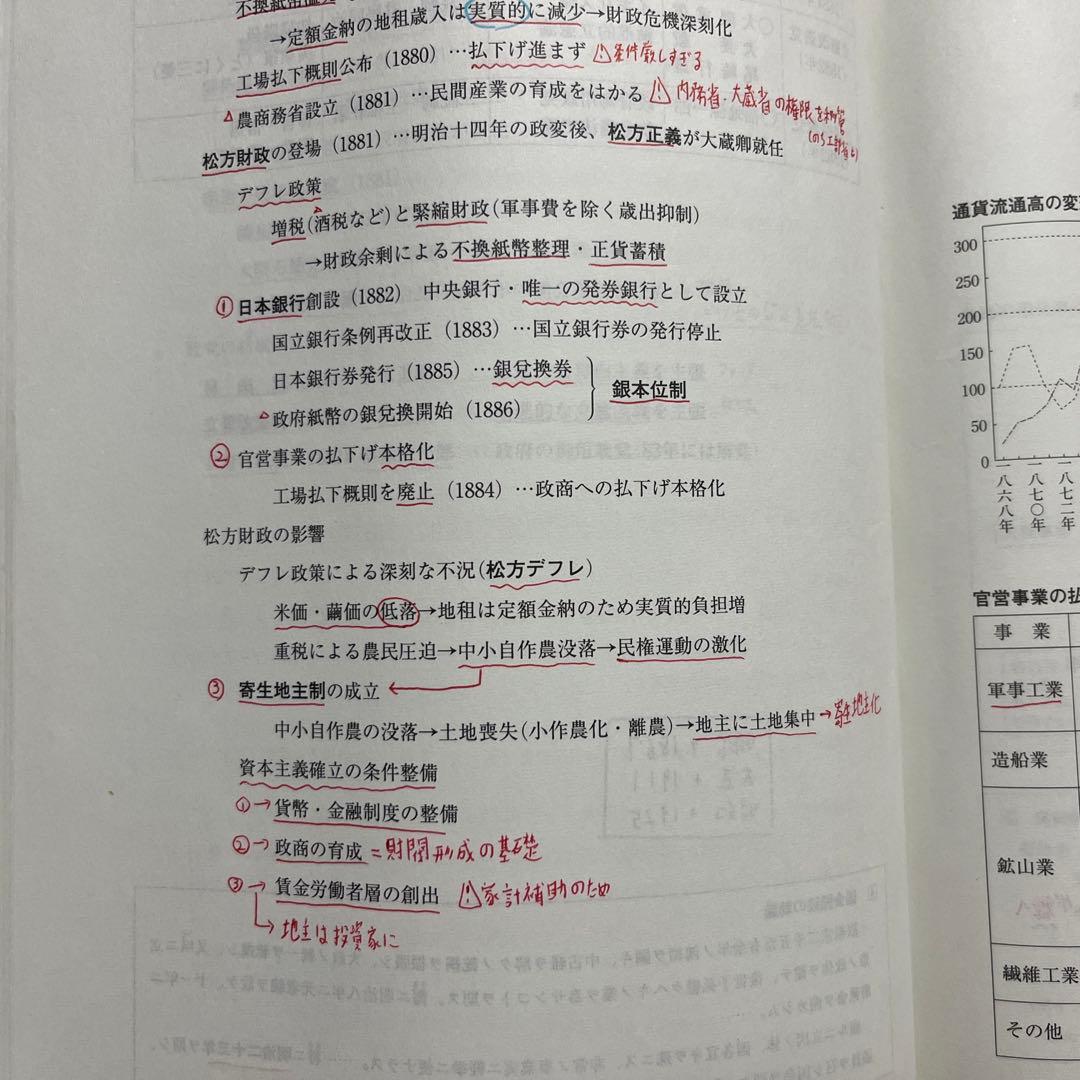 不換紙幣
→定額金納の地租歳入は実質的に減少→財政危機深刻化
工場払下概則公布（1880）…払下げ進まず ⚠条件厳しすぎる
△農商務省設立（1881）…民間産業の育成をはかる ⚠内務省・大蔵省の権限を
松方財政の登場（1881）…明治十四年の政変後、松方正義が大蔵卿就任
デフレ政策
増税(酒税など)と緊縮財政(軍事費を除く歳出抑制)
→財政余剰による不換紙幣整理・正貨蓄積
①日本銀行創設（1882） 中央銀行・唯一の発券銀行として設立
国立銀行条例再改正（1883）…国立銀行券の発行停止
日本銀行券発行（1885）…銀兌換券
△政府紙幣の銀兌換開始（1886）
銀本位制
②官営事業の払下げ本格化
工場払下概則を廃止（1884）…政商への払下げ本格化
松方財政の影響
デフレ政策による深刻な不況(松方デフレ)
米価・繭価の低落→地租は定額金納のため実質的負担増
重税による農民圧迫→中小自作農没落→民権運動の激化
③寄生地主制の成立
中小自作農の没落→土地喪失(小作農化・離農)→地主に土地集中→寄生地主化
資本主義確立の条件整備
①→貨幣・金融制度の整備
②→政商の育成=財閥形成の基礎
③→賃金労働者層の創出 ⚠家計補助のため
→地主は投資家に
通貨流通高の変
300
250
200
150
100
50
0
一八六八年
一八七〇年
一八七二年
官営事業の払
事 業
軍事工業
造船業
鉱山業
繊維工業
その他